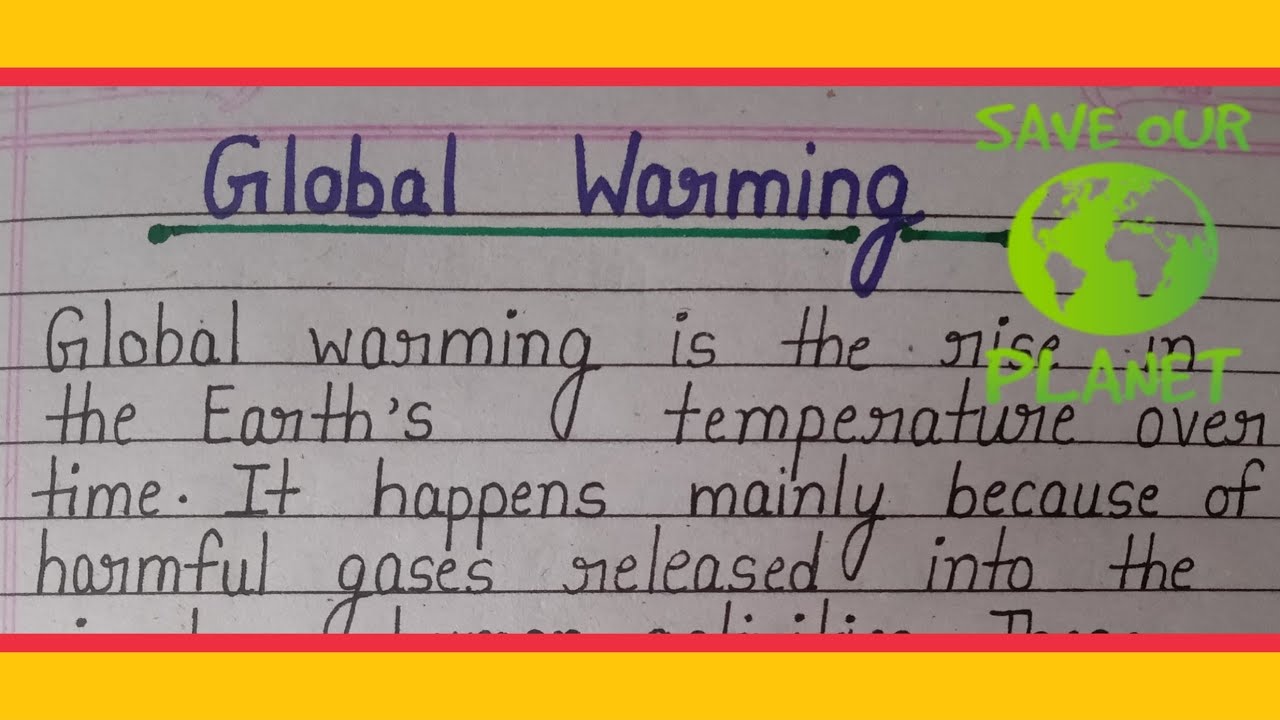 Global Warming
SAVE OUR
PLANET
Global warming is the rise in
the Earth's temperature over
time. It happens mainly because of
harmful gases released into the